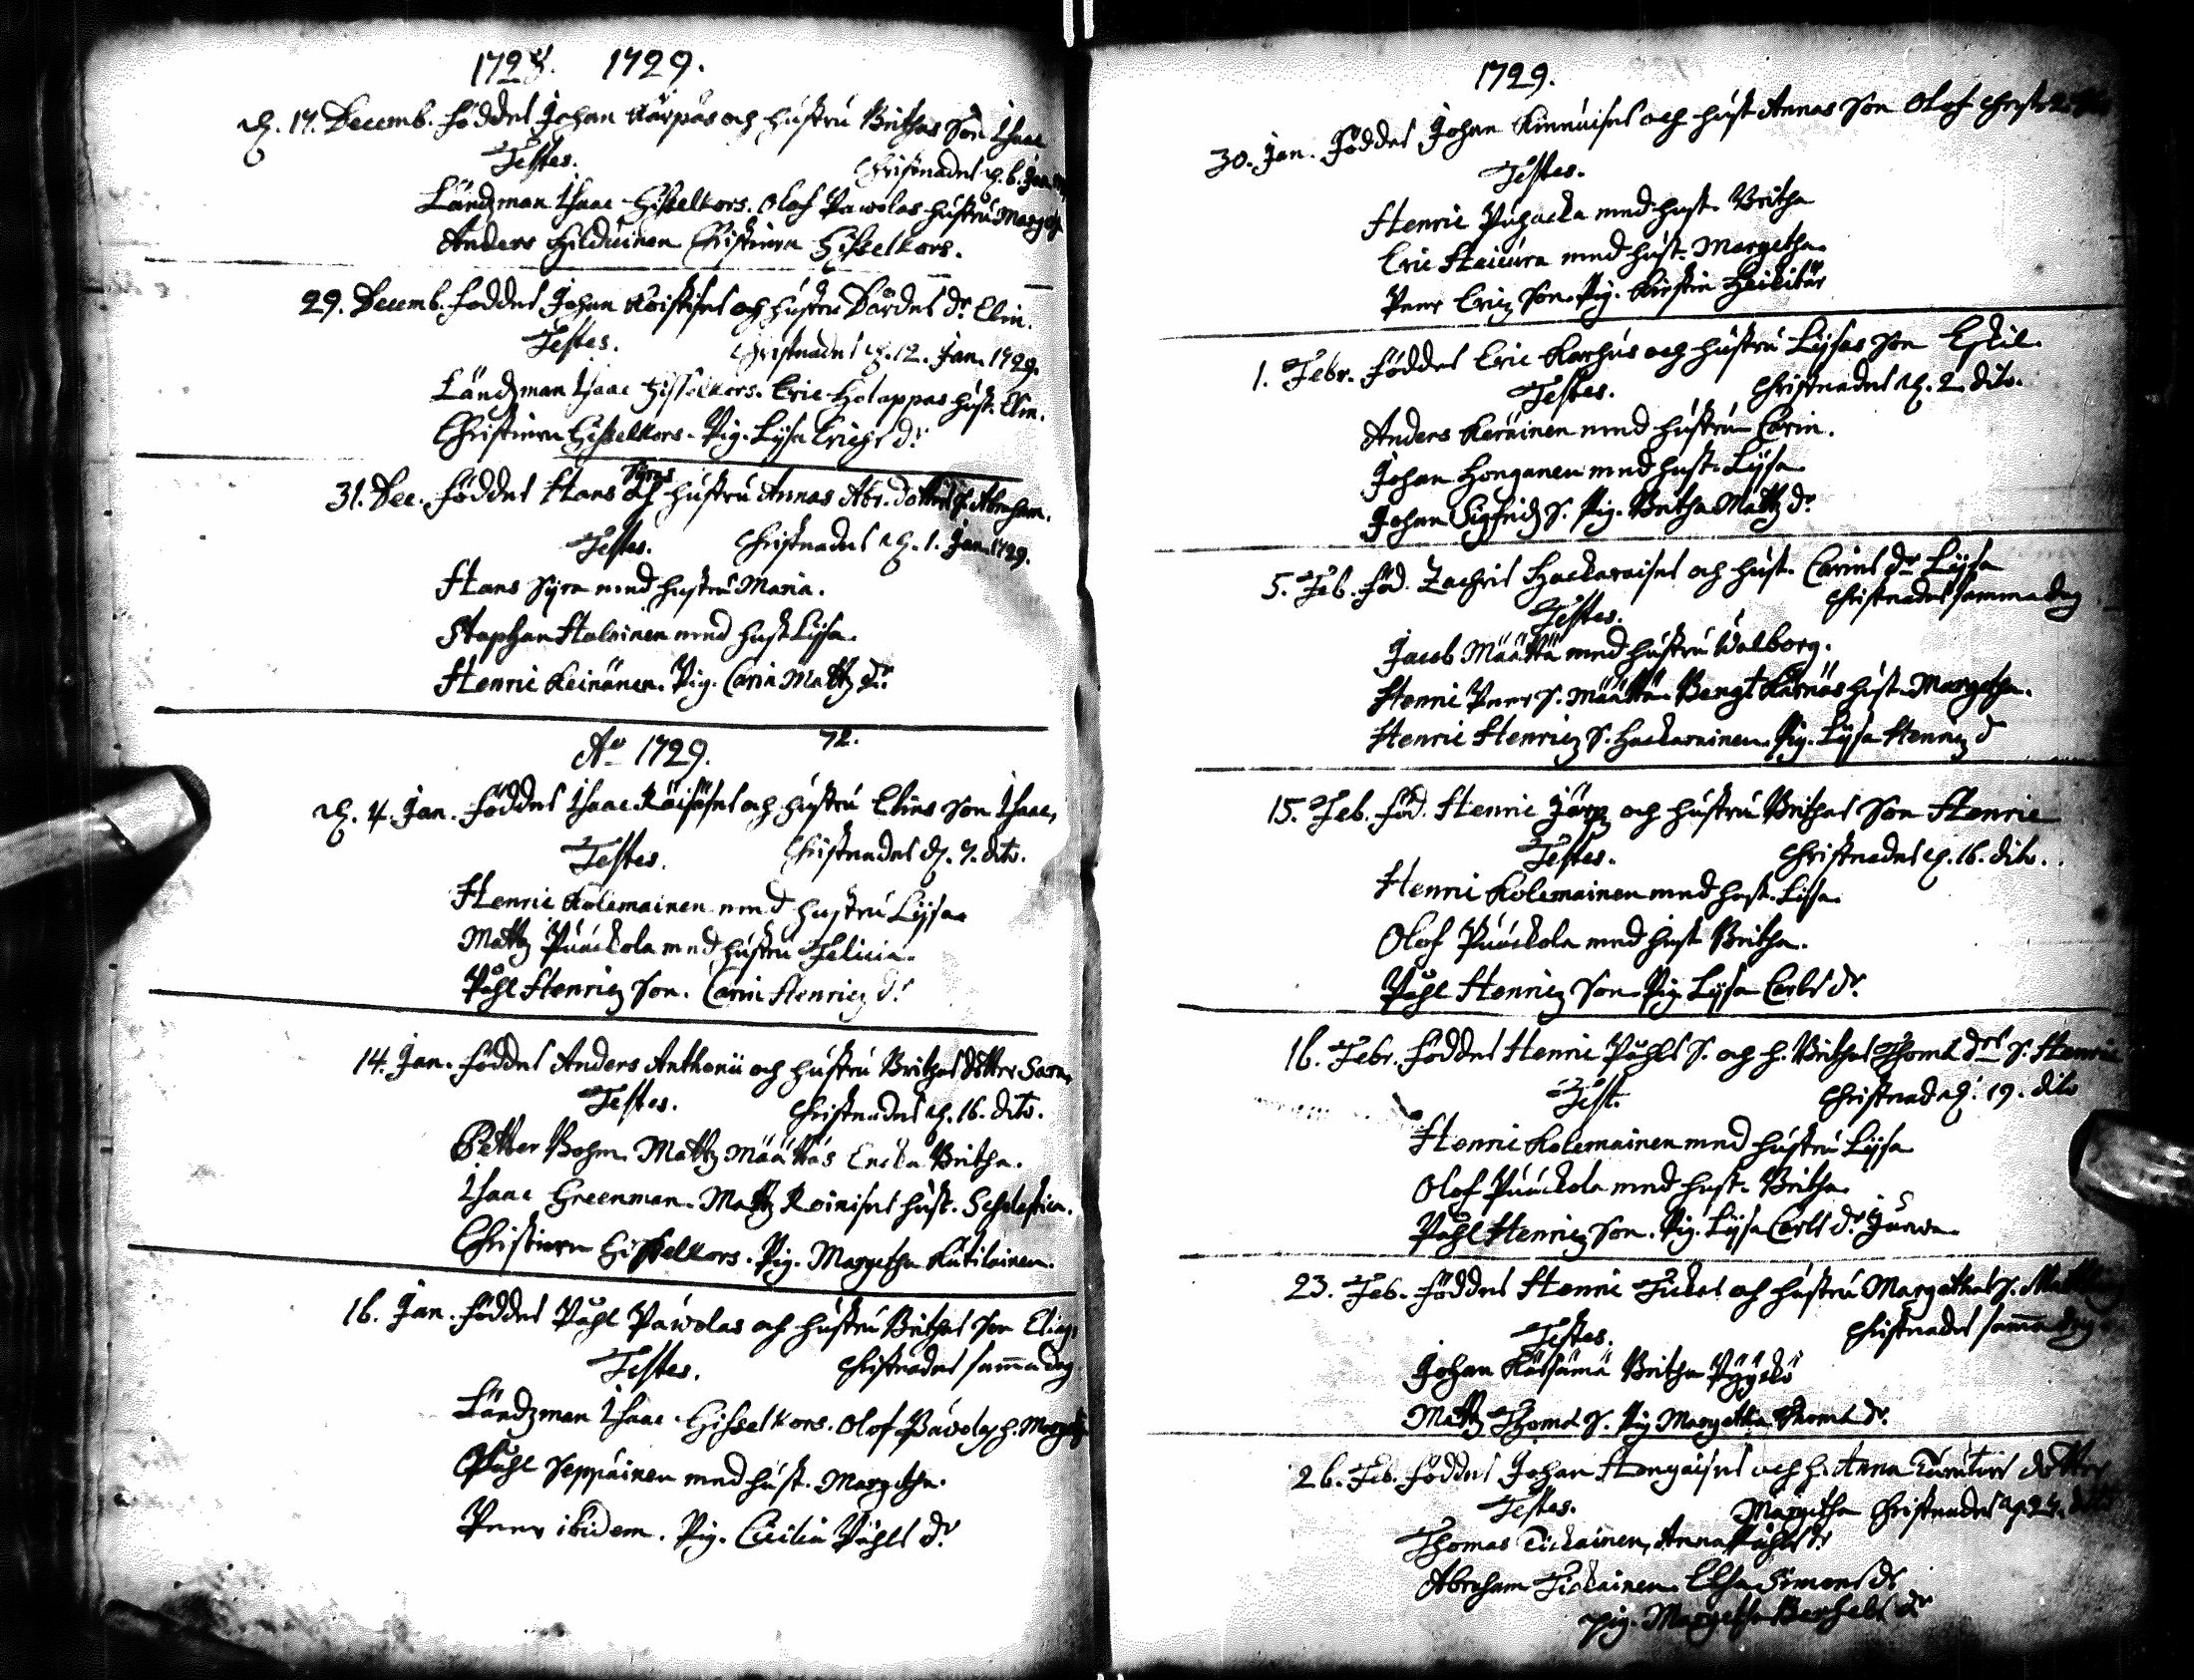 1728. 1729.
d. 17. Decemb. föddes Johan Karpas och hustru Brithas Son Isaac
Testes. Christnades d. 6. Jan.
Ländzman Isaac Hisselkors. Olof Pawolas hustru Marget
Anders Hilduinen Christiern Hisselkors.
29. Decemb. föddes Johan Koistises och hustru Bårdes dr. Elin.
Testes. Christnades d. 12. Jan. 1729.
Ländzman Isaac Hisselkors. Eric Holappas hust. Elin.
Christiern Hisselkors. Pig. Lijsa Erichs dr.
31. Dec. föddes Hans Syras och hustru Annas Abr. dotters s. Abraham.
Testes. Christnades d. 1. Jan. 1729.
Hans Syra med hustru Maria.
Staphan Halainen med hust. Lijsa.
Henric Keinänen. Pig. Carin Mattz dr.
Ao 1729. 72.
d. 4. Jan. föddes Isaac Räisäses och hustru Elins Son Isaac,
Testes. Christnades d. 7. dito.
Henric Kolemainen med hustru Lijsa
Mattz Puuckola med hustru Felicia.
Påhl Henricz Son. Carin Henricz dr
14. Jan. föddes Anders Anthonii och hustru Brithas dotter Sara,
Testes. Christnades d. 16. dito.
Petter Bohm. Mattz Määttäs Encka Britha.
Isaac Greenman. Mattz Koinises hust. Scholastica.
Christiern Hisselkors. Pig. Margetha Kutilainen.
16. Jan. föddes Påhl Pawolas och hustru Brithas Son Elias,
Testes. Christnades samma dag
Ländzman Isaac Hisselkors. Olof Pavolas h. Margeth
Påhl Seppäinen med hust. Margetha.
Peer ibidem. Pig. Cicilia Påhls dr.
1729.
30. Jan. Föddes Johan Kinnuises och hust. Annas Son Olof
Testes.
Henric Puhacka med hust. Britha
Eric Haicura med hust. Margetha
Peer Ericz Son. Pig. Kirstin Heikitär
1. Febr. föddes Eric Karhus och hustru Lijsas Son Eskil.
Testes. Christnades d. 2. dito.
Anders Keräinen med hustru Carin.
Johan Honganen med hust. Lijsa
Johan Sigfridz S. Pig. Britha Mattz dr
5. Feb. föd. Zachris Hackaraises och hust. Carins dr Lijsa
Testes. Christnades samma dag
Jacob Määttä med hustru Walborg.
Henric Peers S. Määttä. Bengt Karnas hust. Margetha.
Henric Henricz S. Hackarainen. Pig. Lijsa Henricz d
15. Feb. föd. Henric Järpz och hustru Brithas Son Henric
Testes. Christnades d. 16. dito.
Henric Kolemainen med hust. Lisa.
Olof Puuckola med hust. Britha.
Påhl Henricz Son. Pig. Lijsa Carls dr.
16. Febr. föddes Henric Påhls S. och h. Brithas Thoms drs S. Henric
Test. Christnad d. 19. dito
Henric Kolemainen med hustru Lijsa
Olof Puuckola med hust. Britha
Påhl Henricz Son. Pig. Lijsa Carls dr
23. Feb. föddes Henric Tickas och hustru Margethas S.
Testes. Christnades samma dag
Johan Kätsämä Britha Pyyckö
Mattz Thoms S. Pig. Margetha Thoms dr.
26. Feb. föddes Johan Hongaises och h. Anna dotter
Testes. Margetha Christnades
Thomas Tickainen, Anna Påhls dr
Abraham Tickainen. Elsa Simons dr
Pig. Margetha Berthels dr